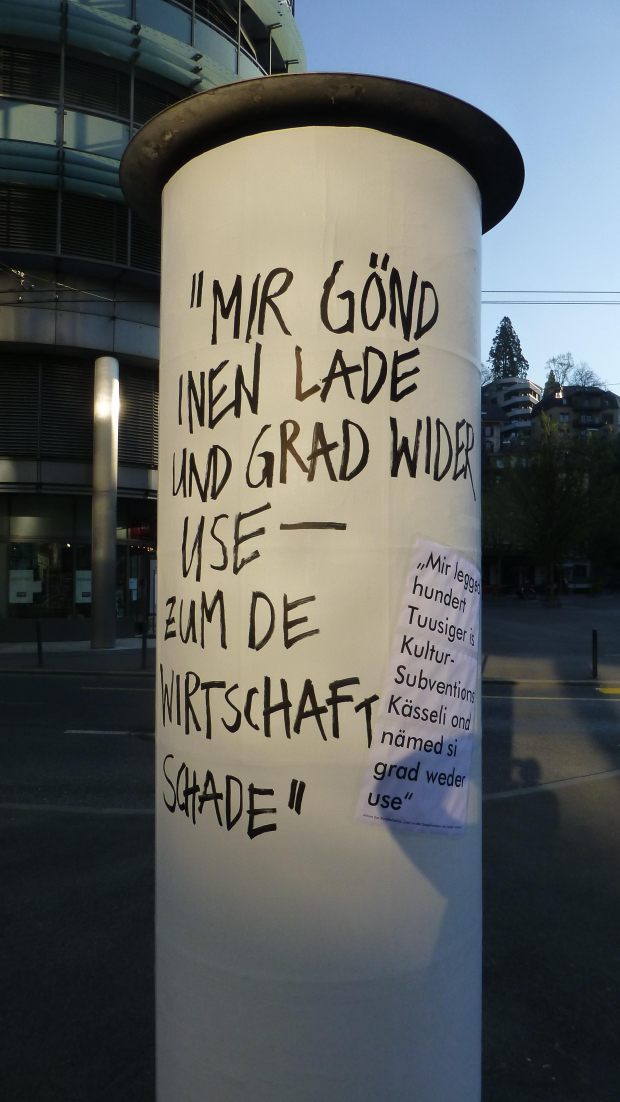 "MIR GÖND
INEN LADE
UND GRAD WIDER
USE —
ZUM DE
WIRTSCHAFT
SCHADE"
„Mir legged
hundert
Tuusiger is
Kultur-
Subventions
Kässeli ond
nämed si
grad weder
use“